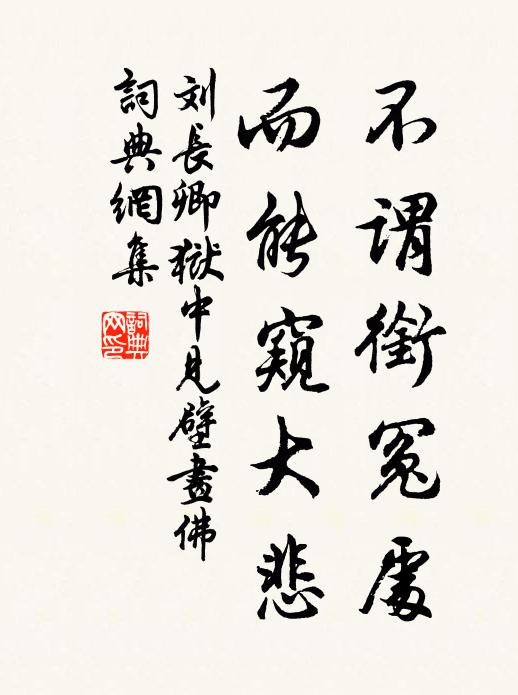 不謂銜冤處
而能窺大悲
刘長卿獄中見壁畫佛
詞典網集
詞典網印